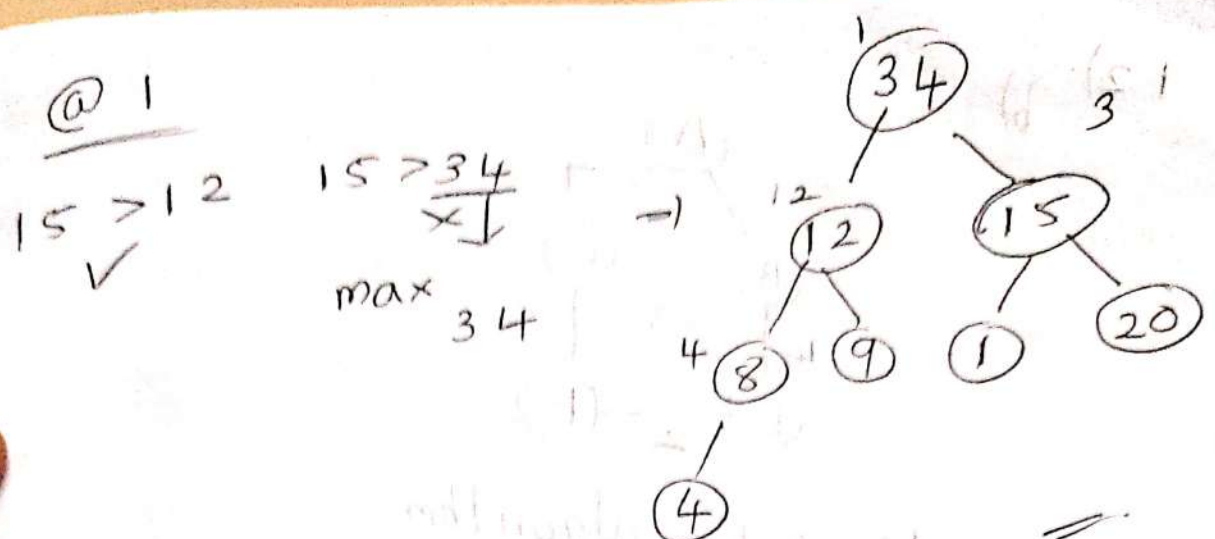 @ 1
15 > 12 15 > 34
✓ x
max 34
1
34
3 1
12
12 15
4 8 9 1 20
4